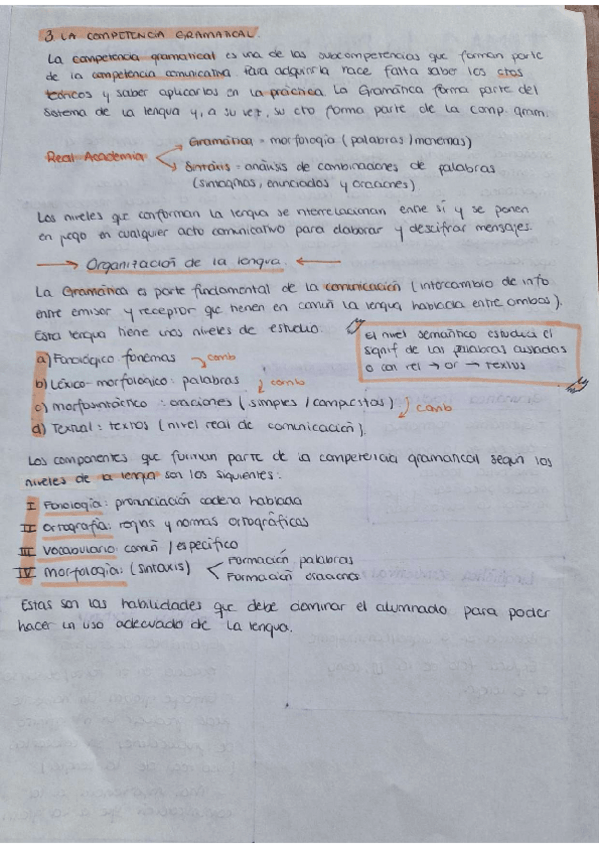 3 LA COMPETENCIA GRAMATICAL.
La competencia gramatical es una de las subcompetencias que forman parte
de la competencia comunicativa. Para adquirirla hace falta saber los ctos
teóricos y saber aplicarlos en la práctica. La Gramática forma parte del
sistema de la lengua y, a su vez, su cto forma parte de la comp. gram.
Gramática = morfología (palabras/monemas)
Real Academia
Sintaxis = análisis de combinaciones de palabras
(sintagmas, enunciados y oraciones)
Los niveles que conforman la lengua se interrelacionan entre sí y se ponen
en juego en cualquier acto comunicativo para elaborar y descifrar mensajes.
→ Organización de la lengua ←
La Gramática es parte fundamental de la comunicación (intercambio de info
entre emisor y receptor que tienen en común la lengua hablada entre ambos).
Esta lengua tiene unos niveles de estudio
El nivel semántico estudia el
signif de las palabras aisladas
o con rel → or → textos
a) Fonológico: fonemas comb
b) Léxico-morfológico: palabras comb
c) morfosintáctico: oraciones (simples/compuestas) comb
d) Textual: textos (nivel real de comunicación).
Los componentes que forman parte de la competencia gramatical según los
niveles de la lengua son los siguientes:
I Fonología: pronunciación cadena hablada
II Ortografía: reglas y normas ortográficas
III Vocabulario: común / específico
IV morfología: (sintaxis) < Formación palabras
Formación oraciones
Estas son las habilidades que debe dominar el alumnado para poder
hacer un uso adecuado de la lengua.